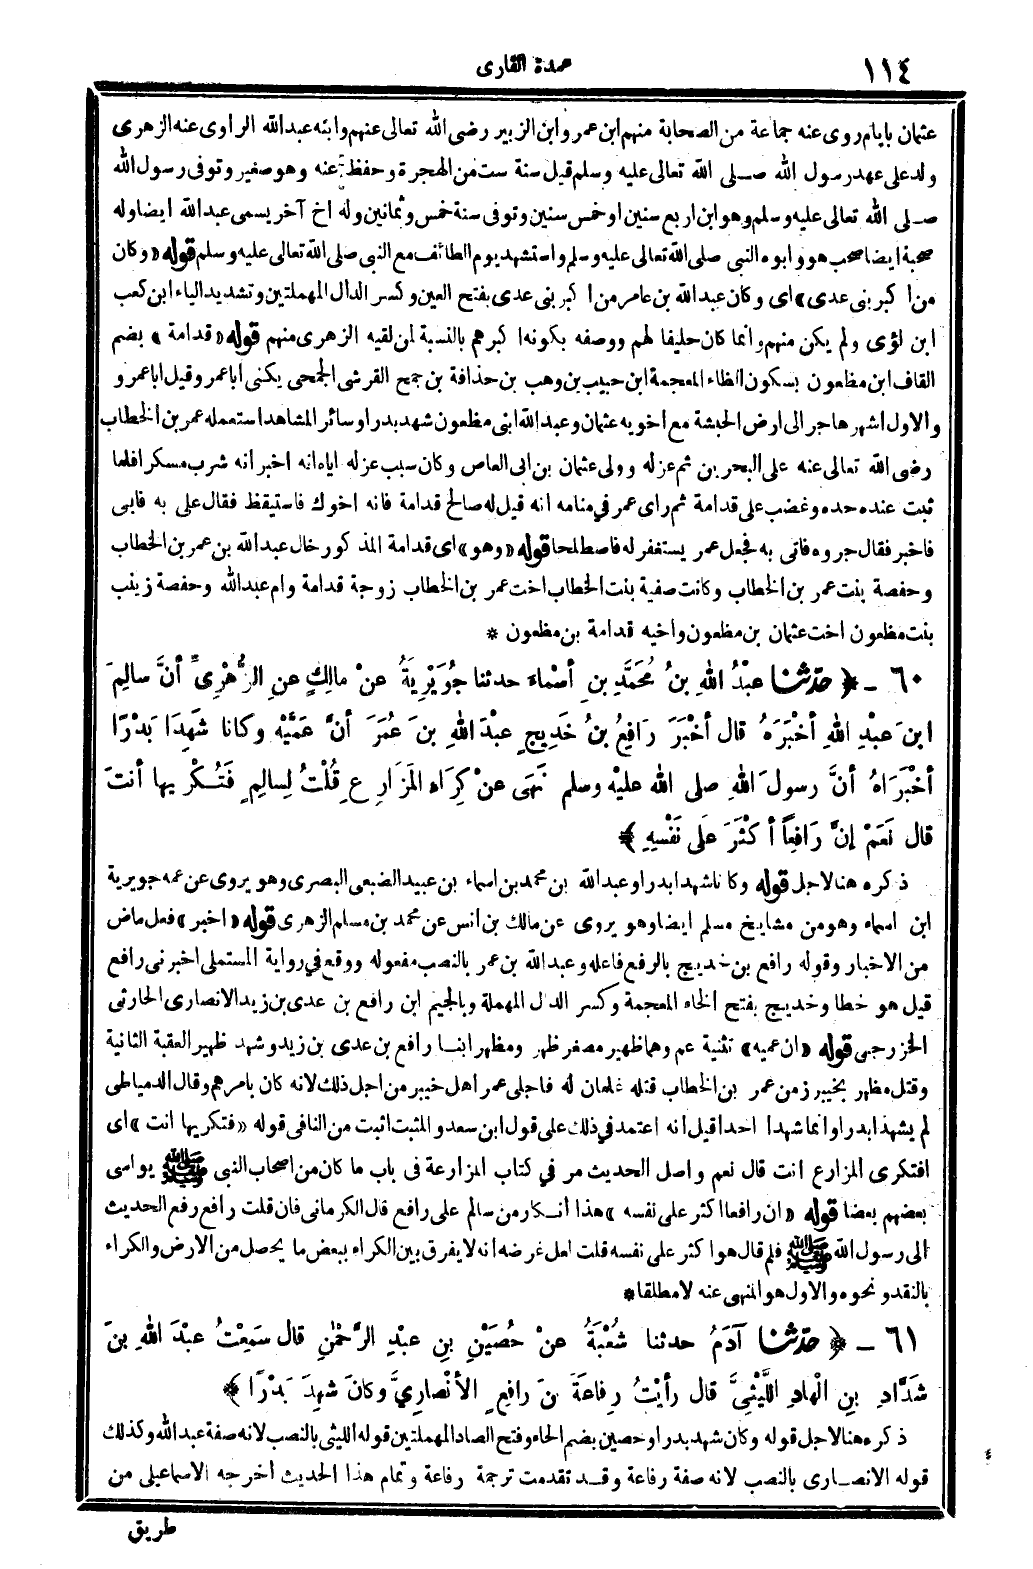 ١١٤
عمدة القارى
عثمان بايام روى عنه جماعة من الصحابة منهم ابن عمر وابن الزبير رضى الله تعالى عنهم وابنه عبد الله الراوى عنه الزهرى
ولد على عهد رسول الله صلى الله تعالى عليه وسلم قيل سنة ست من الهجرة وحفظ عنه وهو صغير وتوفى رسول الله
صلى الله تعالى عليه وسلم وهو ابن اربع سنين او خمس سنين وتوفى سنة خمس وثمانين وله اخ آخر يسمى عبد الله ايضا وله
صحبة ايضا صحب هو وابوه النبى صلى الله تعالى عليه وسلم واستشهد يوم الطائف مع النبى صلى الله تعالى عليه وسلم قوله «وكان
من اكبر بنى عدى» اى وكان عبد الله بن عامر من اكبر بنى عدى بفتح العين وكسر الدال المهملتين وتشديد الياء ابن كعب
ابن لؤى ولم يكن منهم وانما كان حليفا لهم ووصفه بكونه اكبرهم بالنسبة لمن لقيه الزهرى منهم قوله «قدامة» بضم
القاف ابن مظعون بسكون الظاء المعجمة ابن حبيب بن وهب بن حذافة بن جمح القرشى الجمحى يكنى ابا عمر وقيل ابا عمرو
والاول اشهر هاجر الى ارض الحبشة مع اخويه عثمان وعبد الله ابنى مظعون شهد بدرا وسائر المشاهد استعمله عمر بن الخطاب
رضى الله تعالى عنه على البحرين ثم عزله وولى عثمان بن ابى العاص وكان سبب عزله اياه انه اخبر انه شرب مسكرا فلما
ثبت عنده حده وغضب على قدامة ثم راى عمر في منامه انه قيل له صالح قدامة فانه اخوك فاستيقظ فقال على به فابى
فاخبر فقال جروه فاتى به فجعل عمر يستغفر له فاصطلحا قوله «وهو» اى قدامة المذكور خال عبد الله بن عمر بن الخطاب
وحفصة بنت عمر بن الخطاب وكانت صفية بنت الخطاب اخت عمر بن الخطاب زوجة قدامة وام عبد الله وحفصة زينب
بنت مظعون اخت عثمان بن مظعون واخيه قدامة بن مظعون *
٦٠ - ﴿ حَدَّثَنَا عَبْدُ اللهِ بنُ مُحَمَّدِ بنِ أسْمَاءَ حدثنا جُوَيْرِيَةُ عنْ مالِكٍ عنِ الزُّهْرِىِّ أنَّ سالِمَ
ابنَ عبْدِ اللهِ أخْبَرَهُ قال أخْبَرَ رَافِعُ بنُ خَدِيجٍ عبْدَ اللهِ بنَ عُمَرَ أنَّ عَمَّيْهِ وكانا شَهِدَا بَدْرًا
أخْبَرَاهُ أنَّ رسولَ اللهِ صلى الله عليْه وسلم نَهَى عنْ كِرَاءِ المَزَارِعِ قُلْتُ لِسالِمٍ فَتُكْرِيها أنتَ
قال نَعَمْ إنَّ رَافِعاً أكْثَرَ عَلَى نَفْسِهِ ﴾
ذكره هنا لاجل قوله وكانا شهدا بدرا وعبد الله بن محمد بن اسماء بن عبيد الضبعى البصرى وهو يروى عن عمه جويرية
ابن اسماء وهو من مشايخ مسلم ايضا وهو يروى عن مالك بن انس عن محمد بن مسلم الزهرى قوله «اخبر» فعل ماض
من الاخبار وقوله رافع بن خديج بالرفع فاعله وعبد الله بن عمر بالنصب مفعوله ووقع في رواية المستملى اخبرنى رافع
قيل هو خطا وخديج بفتح الخاء المعجمة وكسر الدال المهملة وبالجيم ابن رافع بن عدى بن زيد الانصارى الحارثى
الخزرجى قوله «ان عميه» تثنية عم وهما ظهير مصغر ظهر ومظهر ابنا رافع بن عدى بن زيد وشهد ظهير العقبة الثانية
وقتل مظهر بخيبر زمن عمر بن الخطاب قتله غلمان له فاجلى عمر اهل خيبر من اجل ذلك لانه كان بامرهم وقال الدمياطى
لم يشهدا بدرا وانما شهدا احدا قيل انه اعتمد في ذلك على قول ابن سعد والمثبت اثبت من النافى قوله «فتكريها انت» اى
افتكرى المزارع انت قال نعم واصل الحديث مر في كتاب المزارعة فى باب ما كان من اصحاب النبى ﷺ يواسى
بعضهم بعضا قوله «ان رافعا اكثر على نفسه» هذا انكار من سالم على رافع قال الكرمانى فان قلت رافع رفع الحديث
الى رسول الله ﷺ فلم قال هو اكثر على نفسه قلت لعل غرضه انه لا يفرق بين الكراء ببعض ما يحصل من الارض والكراء
بالنقد ونحوه والاول هو المنهى عنه لا مطلقا *
٦١ - ﴿ حَدَّثَنَا آدَمُ حدثنا شُعْبَةُ عنْ حُصَيْنِ بنِ عبْدِ الرَّحْمٰنِ قال سَمِعْتُ عبْدَ اللهِ بنَ
شَدَّادِ بنِ الْهادِ اللَّيْثِىَّ قال رأيْتُ رِفاعَةَ بنَ رافِعٍ الأنْصارِىَّ وكانَ شَهِدَ بَدْرًا ﴾
ذكره هنا لاجل قوله وكان شهد بدرا وحصين بضم الحاء وفتح الصاد المهملتين قوله الليثى بالنصب لانه صفة عبد الله وكذلك
قوله الانصارى بالنصب لانه صفة رفاعة وقد تقدمت ترجمة رفاعة وتمام هذا الحديث اخرجه الاسماعيلى من
طريق